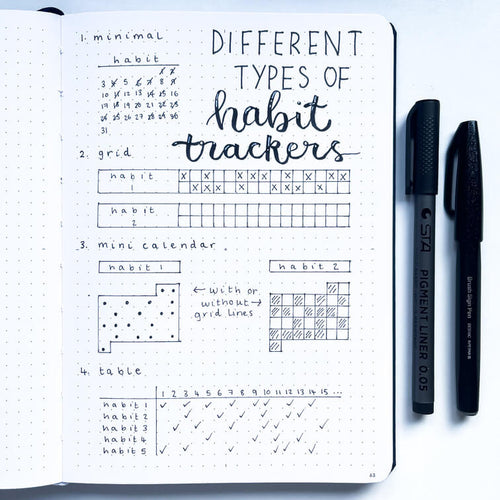 DIFFERENT
TYPES OF
habit
trackers
1. minimal
habit
1 2
3 4 5 6 7 8 9
10 11 12 13 14 15 16
17 18 19 20 21 22 23
24 25 26 27 28 29 30
31
2. grid
habit
1
habit
2
3. mini calendar
habit 1
habit 2
← with or
without →
grid lines
4. table
1 2 3 4 5 6 7 8 9 10 11 12 13 14 15 ...
habit 1
habit 2
habit 3
habit 4
habit 5
STA
PIGMENT LINER 0.05
Brush Sign Pen